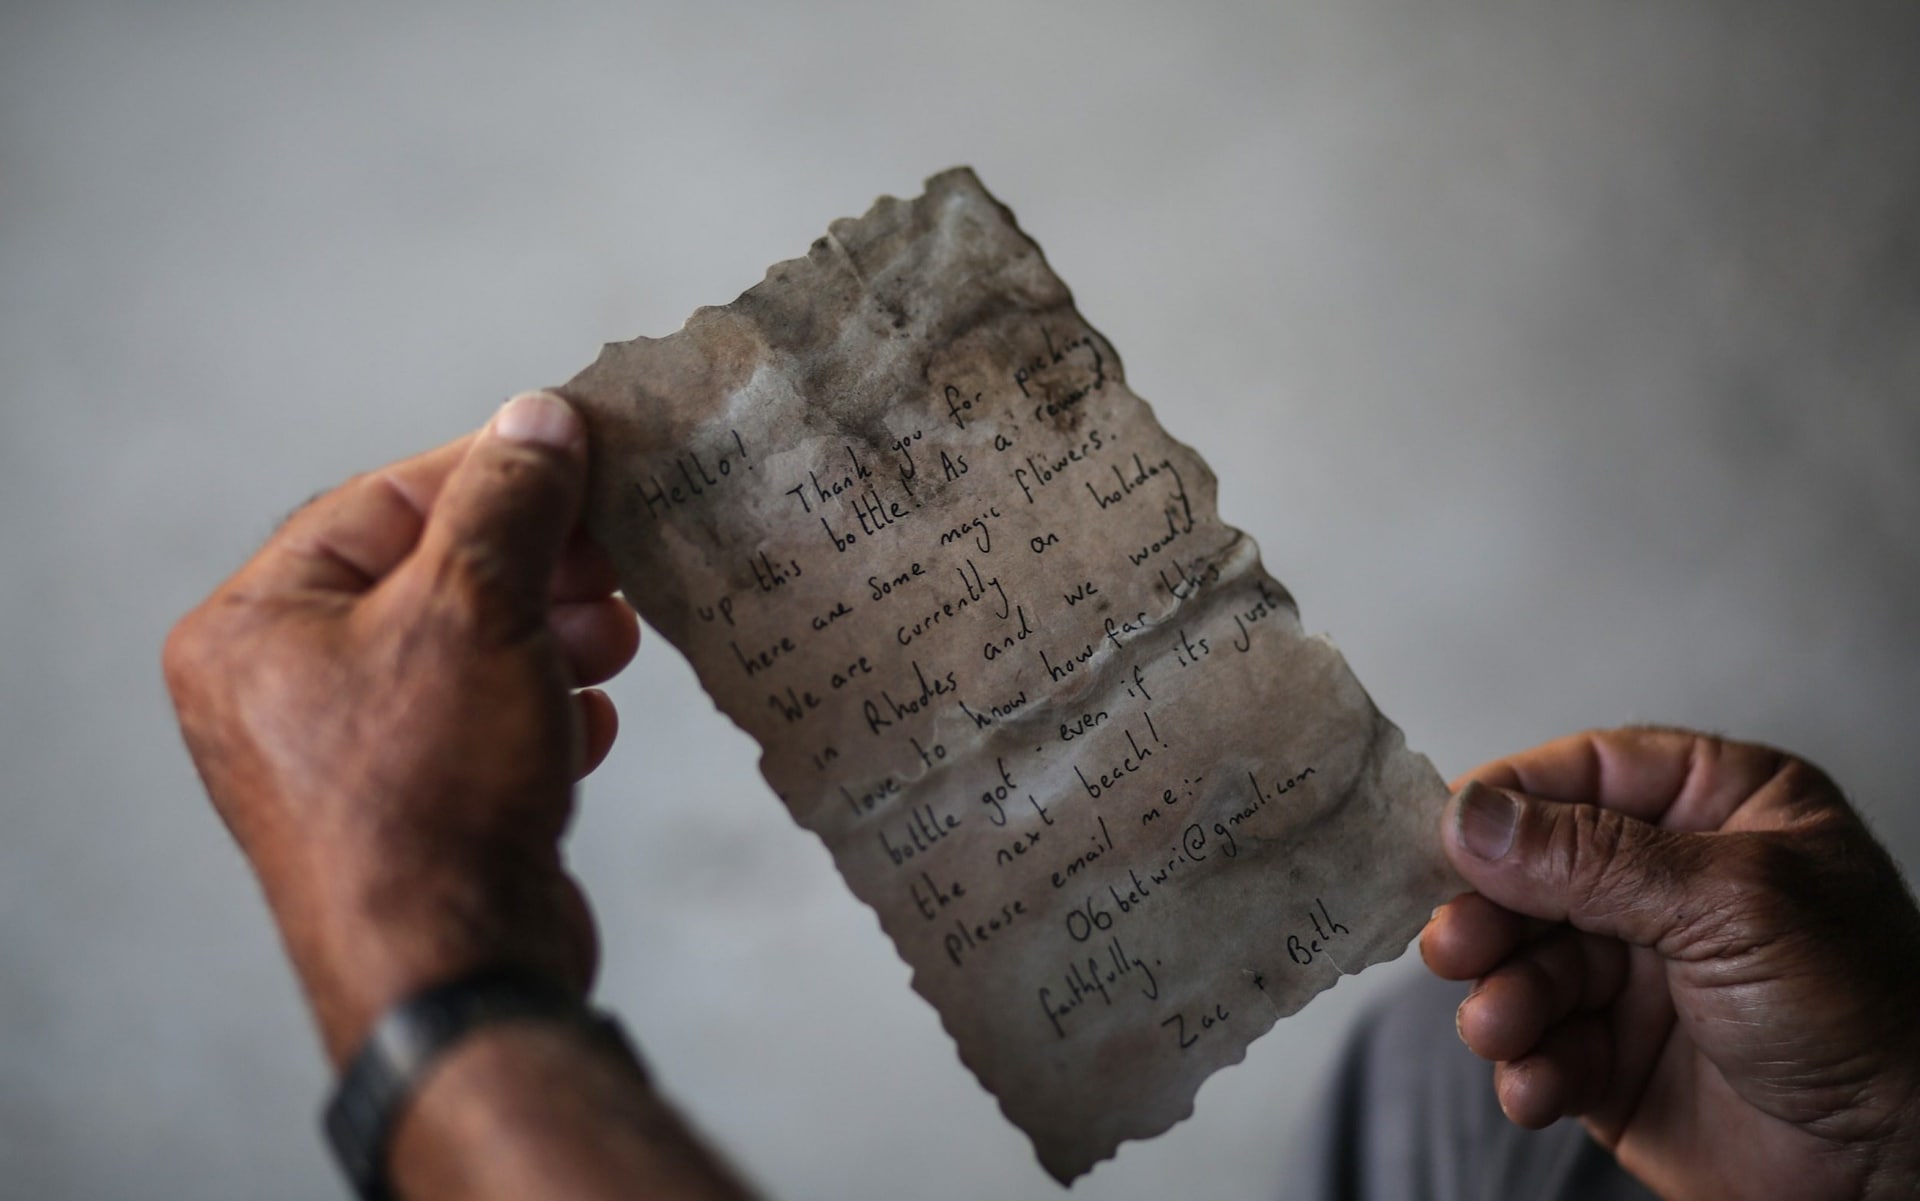 Hello!
Thank you for picking
up this bottle! As a reward
here are some magic flowers.
We are currently on holiday
in Rhodes and we would
love to know how far this
bottle got - even if its just
the next beach!
please email me:-
06betwri@gmail.com
faithfully.
Zac + Beth